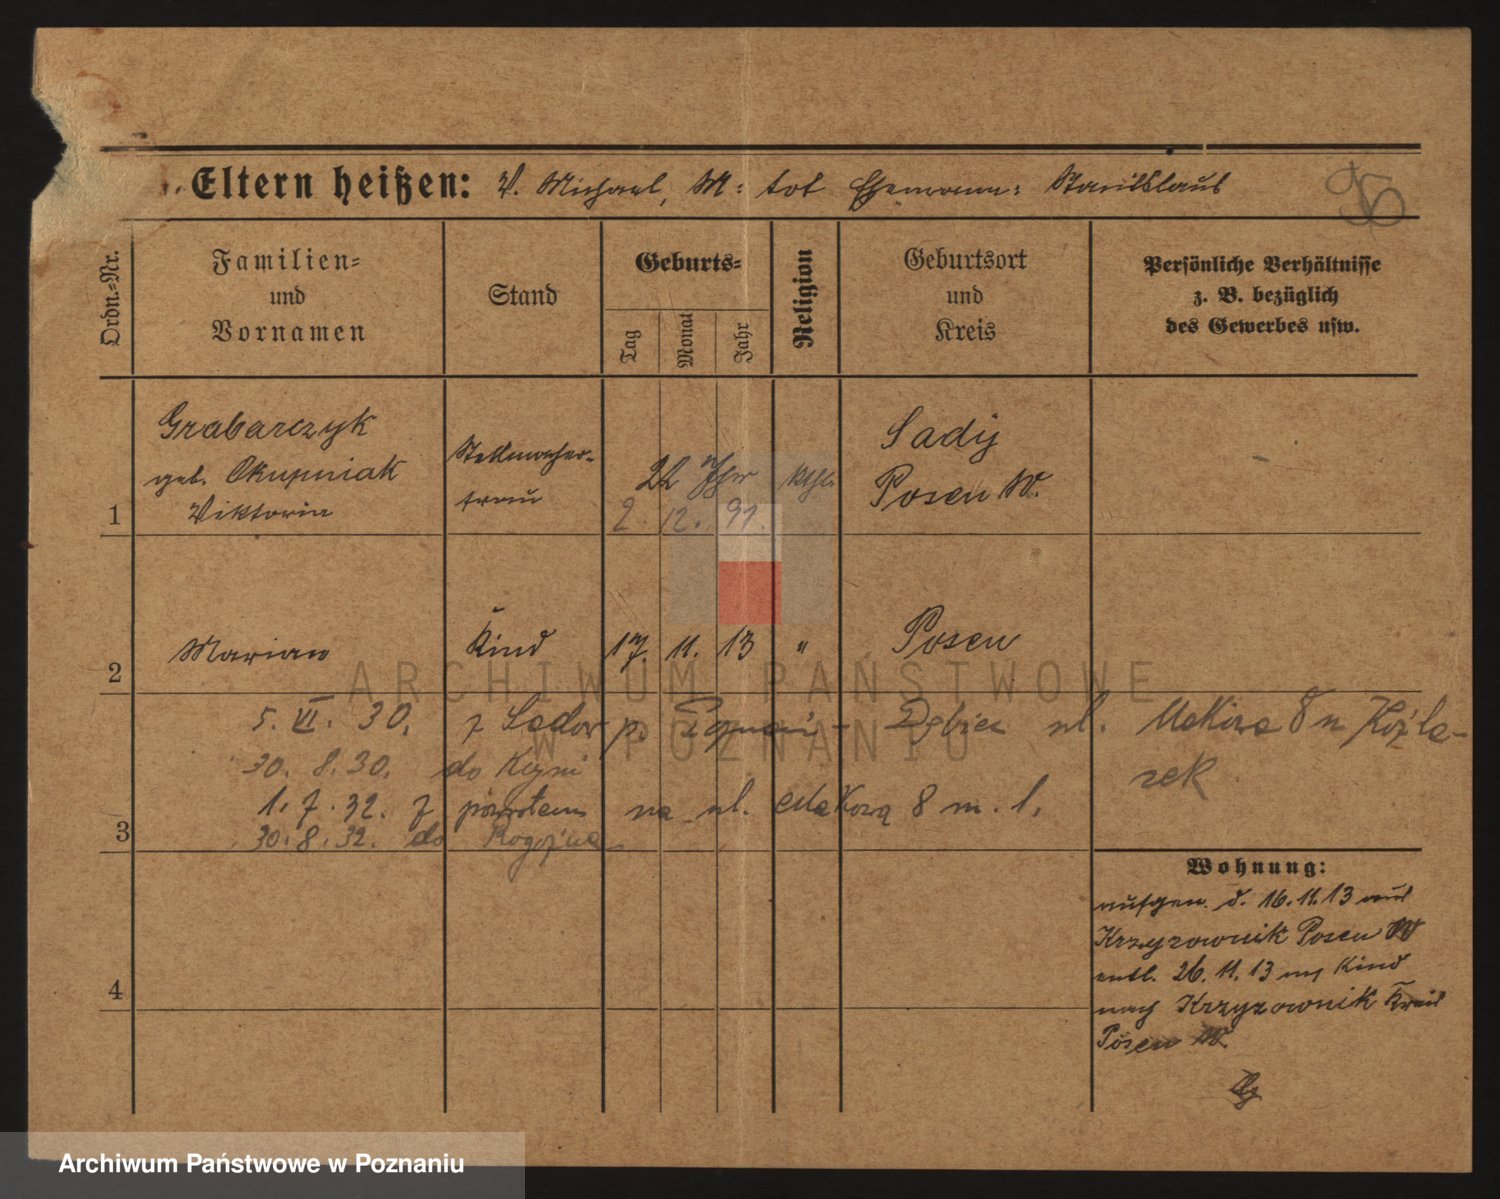 Eltern heißen: V. Michael, M: tot Ehemann: Stanislaus
95
Ordn.=Nr.
Familien=
und
Vornamen
Stand
Geburts=
Tag
Monat
Jahr
Religion
Geburtsort
und
Kreis
Persönliche Verhältnisse
z. B. bezüglich
des Gewerbes usw.
1
Grabarczyk
geb. Okupniak
Viktoria
Stellmacher-
frau
22 Jhr
2. 12. 91.
kthl.
Sady
Posen W.
2
Marian
Kind
17. 11. 13
"
Posen
5. VI. 30. z Sadów p. Poznań - Dębiec ul. Makowa 8 u Koźla-
rek
30. 8. 30. do Kcyni
1. 7. 32. z powrotem na ul. Makową 8 m. 1.
3
30. 8. 32. do Rogoźna
Wohnung:
aufgen. d. 16. 11. 13 aus
Krzyzownik Posen W
entl. 26. 11. 13 m/ Kind
nach Krzyzownik Kreis
Posen W.
4
ARCHIWUM PAŃSTWOWE
W POZNANIU
Archiwum Państwowe w Poznaniu